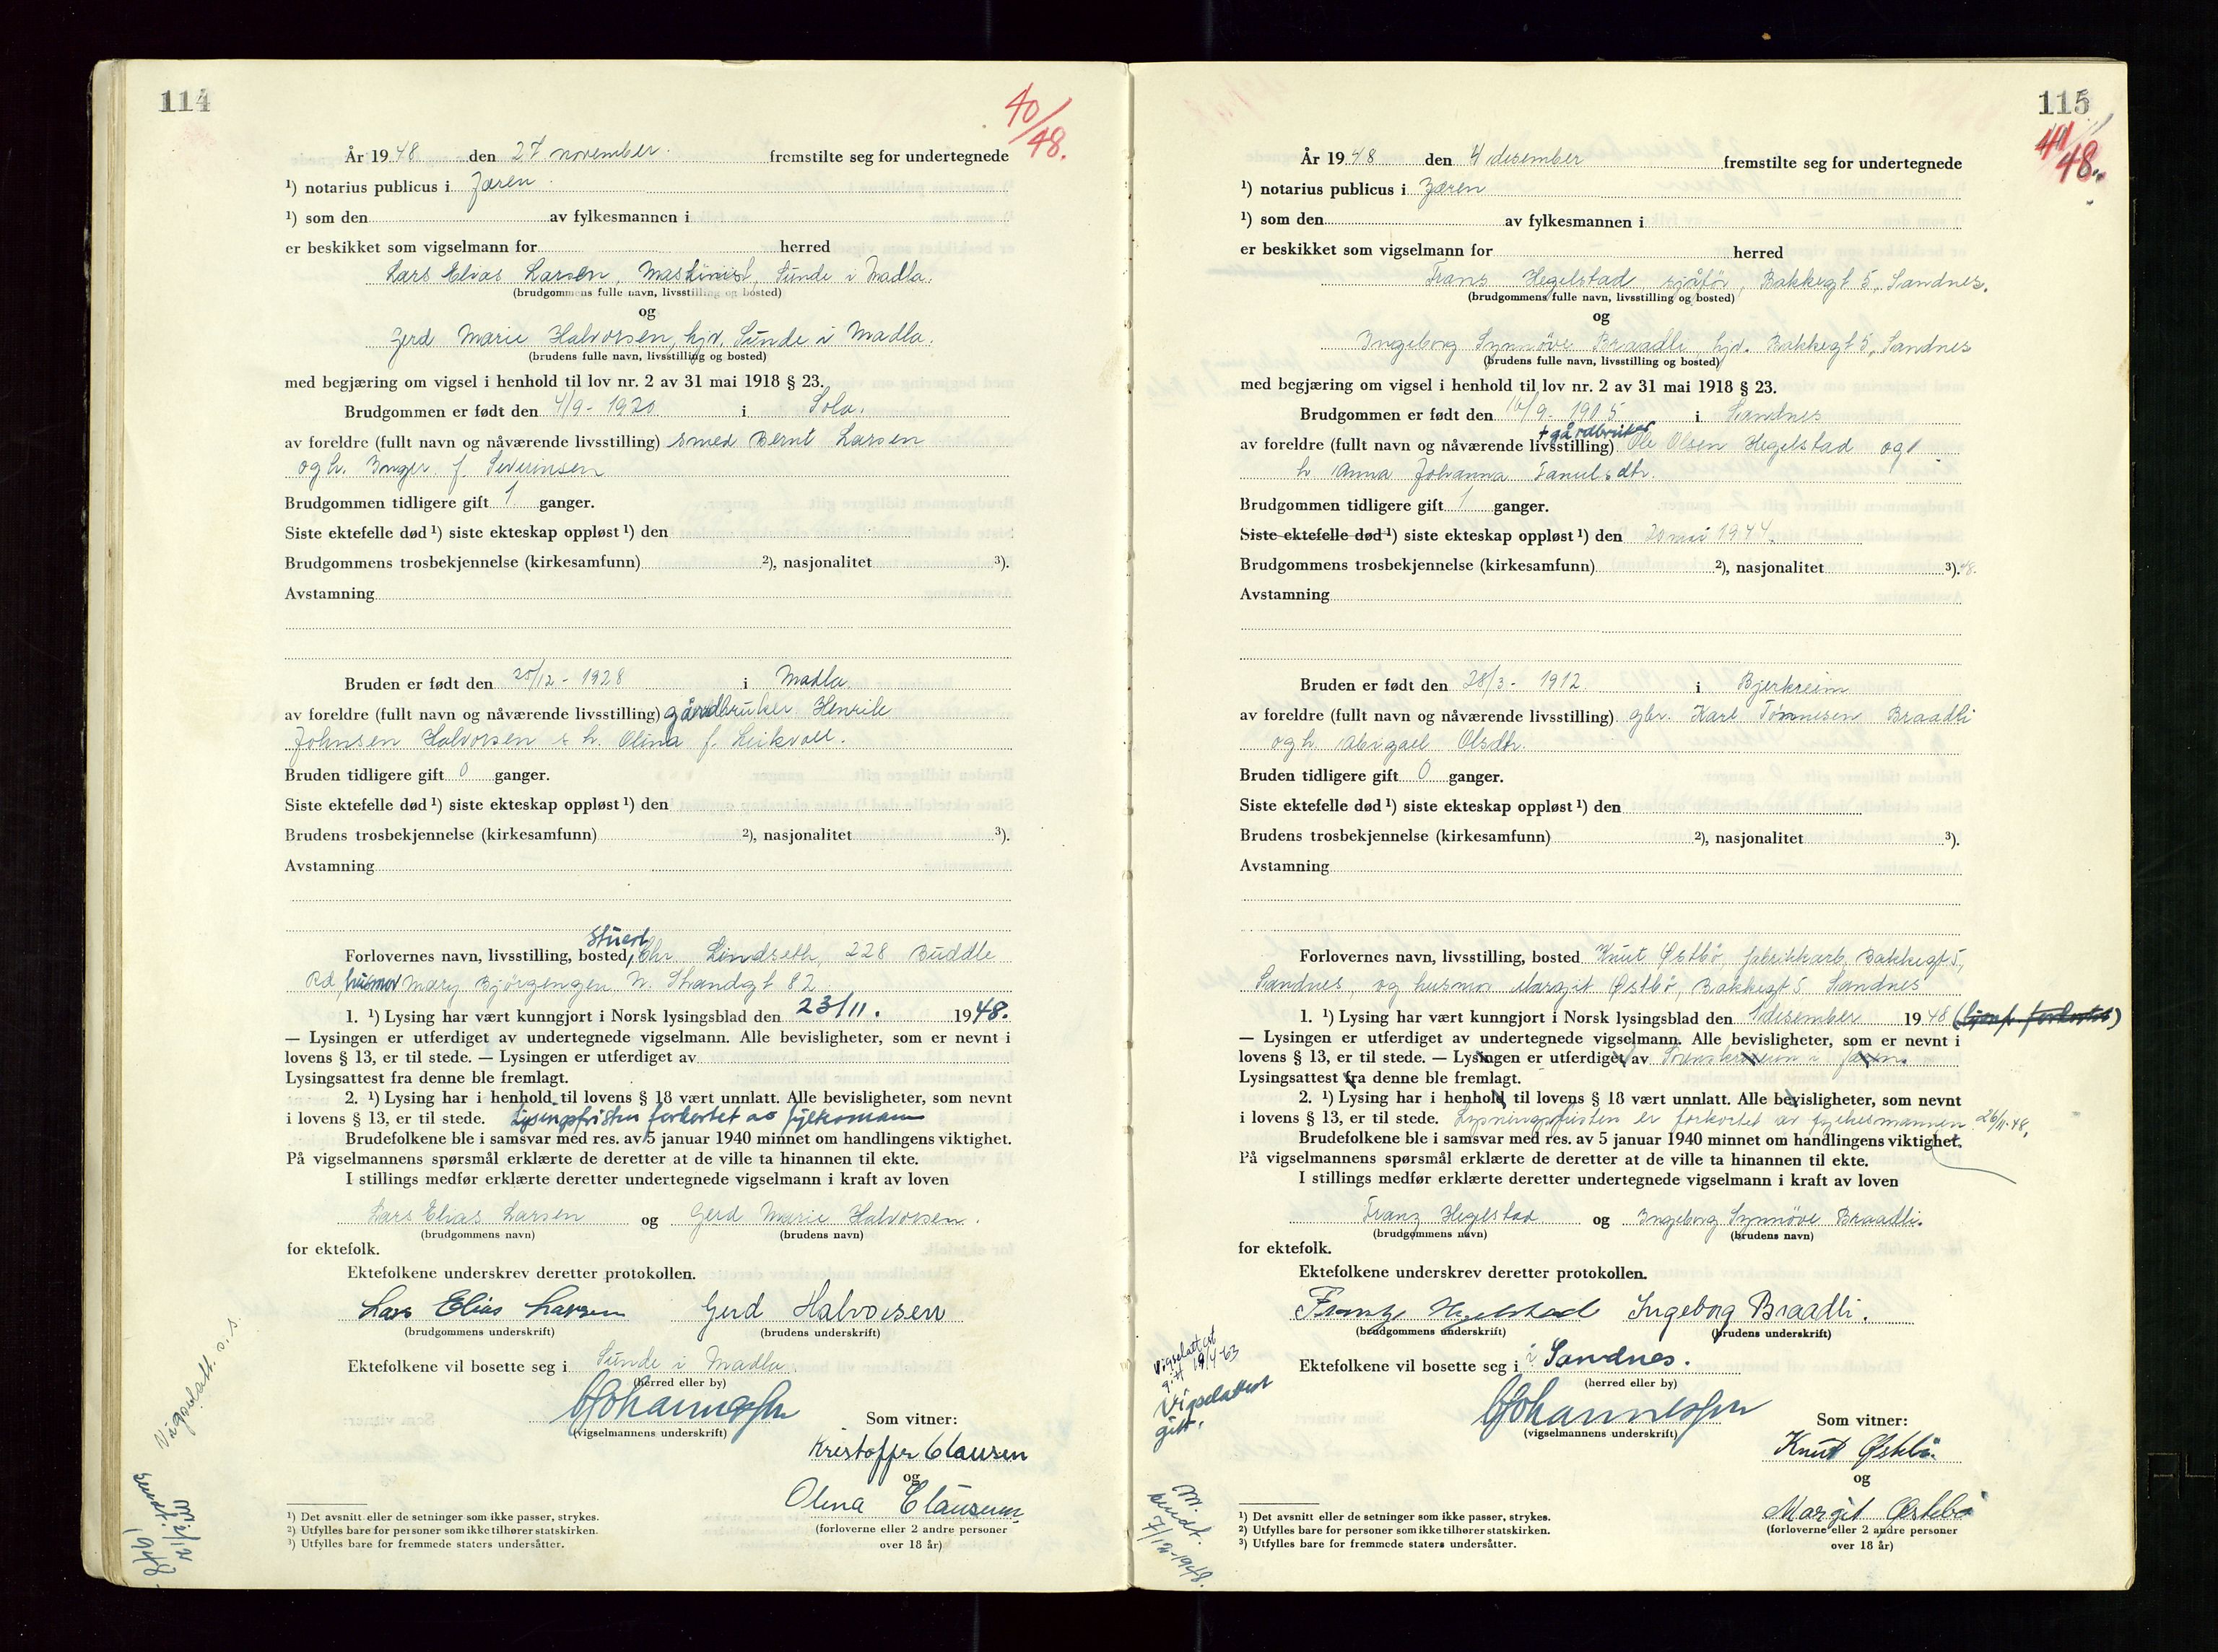 114
40/48.
År 1948 den 27. november. fremstilte seg for undertegnede
¹) notarius publicus i Jæren.
¹) som den av fylkesmannen i
er beskikket som vigselmann for herred
Lars Elias Larsen, Maskinist, Sunde i Madla.
(brudgommens fulle navn, livsstilling og bosted)
og
Gerd Marie Halvorsen, hjv. Sunde i Madla.
(brudens fulle navn, livsstilling og bosted)
med begjæring om vigsel i henhold til lov nr. 2 av 31 mai 1918 § 23.
Brudgommen er født den 4/9 - 1920 i Sola.
av foreldre (fullt navn og nåværende livsstilling) smed Bernt Larsen
og h. Inger f. Severinsen
Brudgommen tidligere gift 1 ganger.
Siste ektefelle død ¹) siste ekteskap oppløst ¹) den
Brudgommens trosbekjennelse (kirkesamfunn) ²), nasjonalitet ³).
Avstamning
Bruden er født den 25/12 - 1928 i Madla.
av foreldre (fullt navn og nåværende livsstilling) gårdbruker Henrik
Johnsen Halvorsen & h. Olina f. Leikvoll.
Bruden tidligere gift 0 ganger.
Siste ektefelle død ¹) siste ekteskap oppløst ¹) den
Brudens trosbekjennelse (kirkesamfunn) ²), nasjonalitet ³).
Avstamning
Stuert
Forlovernes navn, livsstilling, bosted, Chr. Lindseth, 228 Buddle
Rd, husmor Mary Bjørgengen N. Strandgt 82
1. ¹) Lysing har vært kunngjort i Norsk lysingsblad den 23/11. 1948.
— Lysingen er utferdiget av undertegnede vigselmann. Alle bevisligheter, som er nevnt i
lovens § 13, er til stede. — Lysingen er utferdiget av
Lysingsattest fra denne ble fremlagt.
2. ¹) Lysing har i henhold til lovens § 18 vært unnlatt. Alle bevisligheter, som nevnt
i lovens § 13, er til stede. Lysingsfristen forkortet av fylkesmann
Brudefolkene ble i samsvar med res. av 5 januar 1940 minnet om handlingens viktighet.
På vigselmannens spørsmål erklærte de deretter at de ville ta hinannen til ekte.
I stillings medfør erklærte deretter undertegnede vigselmann i kraft av loven
Lars Elias Larsen og Gerd Marie Halvorsen.
(brudgommens navn) (brudens navn)
for ektefolk.
Ektefolkene underskrev deretter protokollen.
Lars Elias Larsen Gerd Halvorsen
(brudgommens underskrift) (brudens underskrift)
Ektefolkene vil bosette seg i Sunde i Madla.
(herred eller by)
(vigselmannens underskrift)
Som vitner:
Kristoffer Clausen
og
Olena Clausen
(forloverne eller 2 andre personer
over 18 år)
¹) Det avsnitt eller de setninger som ikke passer, strykes.
²) Utfylles bare for personer som ikke tilhører statskirken.
³) Utfylles bare for fremmede staters undersåtter.
Vigselatt. s. s.
115
41/48.
År 1948 den 4 desember fremstilte seg for undertegnede
¹) notarius publicus i Jæren
¹) som den av fylkesmannen i
er beskikket som vigselmann for herred
Frans Hegelstad, sjåfør, Bakkegt 5, Sandnes.
(brudgommens fulle navn, livsstilling og bosted)
og
Ingeborg Synnøve Braadli hjv. Bakkegt 5, Sandnes
(brudens fulle navn, livsstilling og bosted)
med begjæring om vigsel i henhold til lov nr. 2 av 31 mai 1918 § 23.
Brudgommen er født den 16/9 - 1905 i Sandnes
+ gårdbruker
av foreldre (fullt navn og nåværende livsstilling) Ole Olsen Hegelstad og
h Anna Johanna Tanulsdtr.
Brudgommen tidligere gift 1 ganger.
Siste ektefelle død ¹) siste ekteskap oppløst ¹) den 20 mai 1944.
Brudgommens trosbekjennelse (kirkesamfunn) ²), nasjonalitet ³).
Avstamning
Bruden er født den 28/3 - 1912 i Bjerkreim
av foreldre (fullt navn og nåværende livsstilling) gbr. Karl Tønnesen Braadli
og h. Abigael Olsdtr.
Bruden tidligere gift 0 ganger.
Siste ektefelle død ¹) siste ekteskap oppløst ¹) den
Brudens trosbekjennelse (kirkesamfunn) ²), nasjonalitet ³).
Avstamning
Forlovernes navn, livsstilling, bosted Knut Østbø, fabrikkarb, Bakkegt 5,
Sandnes, og husmor Margit Østbø, Bakkegt 5 Sandnes
1. ¹) Lysing har vært kunngjort i Norsk lysingsblad den 1 desember 1948
— Lysingen er utferdiget av undertegnede vigselmann. Alle bevisligheter, som er nevnt i
lovens § 13, er til stede. — Lysingen er utferdiget av Sorenskriveren i Jæren.
Lysingsattest fra denne ble fremlagt.
2. ¹) Lysing har i henhold til lovens § 18 vært unnlatt. Alle bevisligheter, som nevnt
i lovens § 13, er til stede. Lysningsfristen er forkortet av fylkesmannen 26/11-48.
Brudefolkene ble i samsvar med res. av 5 januar 1940 minnet om handlingens viktighet.
På vigselmannens spørsmål erklærte de deretter at de ville ta hinannen til ekte.
I stillings medfør erklærte deretter undertegnede vigselmann i kraft av loven
Franz Hegelstad og Ingeborg Synnøve Braadli.
(brudgommens navn) (brudens navn)
for ektefolk.
Ektefolkene underskrev deretter protokollen.
Frantz Hegelstad Ingeborg Braadli.
(brudgommens underskrift) (brudens underskrift)
Ektefolkene vil bosette seg i i Sandnes.
(herred eller by)
Johannessen
(vigselmannens underskrift)
Som vitner:
Knut Østbø.
og
Margit Østebø
(forloverne eller 2 andre personer
over 18 år)
Vigselattest
gitt 19/4-63
Vigselattest
gitt.
M.
sendt.
7/12-1948.
¹) Det avsnitt eller de setninger som ikke passer, strykes.
²) Utfylles bare for personer som ikke tilhører statskirken.
³) Utfylles bare for fremmede staters undersåtter.